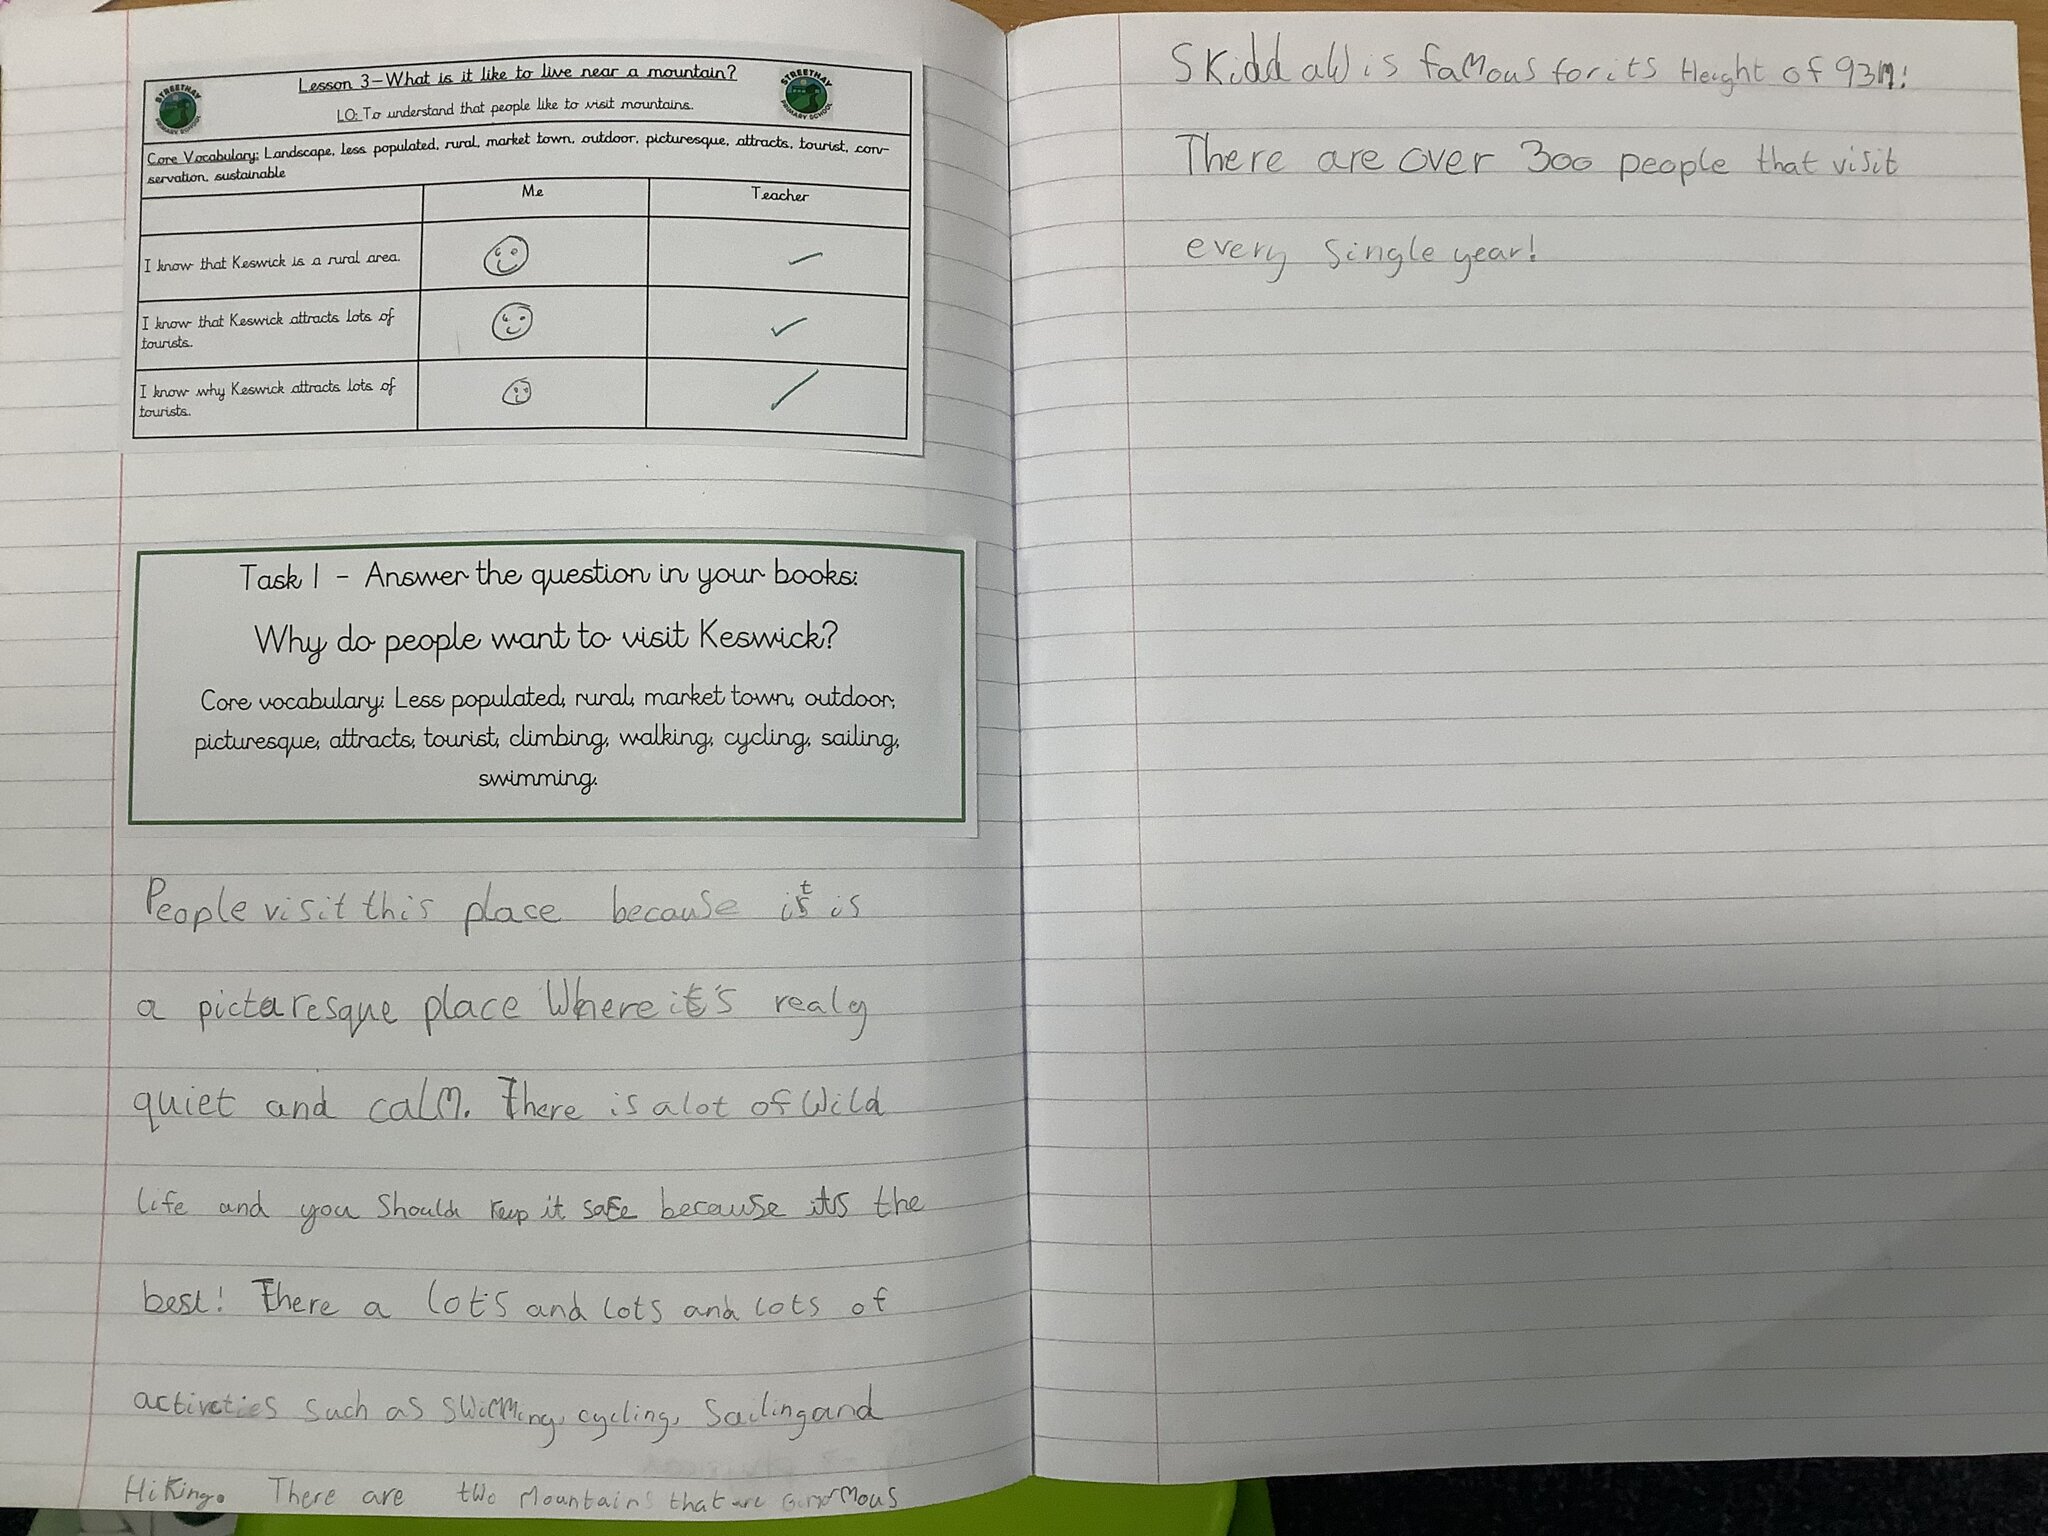 Lesson 3 – What is it like to live near a mountain?
LO: To understand that people like to visit mountains.
STREETHAY PRIMARY SCHOOL
STREETHAY PRIMARY SCHOOL
Core Vocabulary: Landscape, less populated, rural, market town, outdoor, picturesque, attracts, tourist, con-
servation, sustainable
Me Teacher
I know that Keswick is a rural area.
I know that Keswick attracts lots of
tourists.
I know why Keswick attracts lots of
tourists.
Task 1 - Answer the question in your books:
Why do people want to visit Keswick?
Core vocabulary: Less populated, rural, market town, outdoor,
picturesque, attracts, tourist, climbing, walking, cycling, sailing,
swimming.
People visit this place because it is
a picturesque place Where it's realy
quiet and calm. There is a lot of Wild
life and you should keep it safe because its the
best! There a lots and lots and lots of
activeties such as swimming, cycling, Sailing and
Hiking. There are two mountains that are
Skiddaw is famous for its Height of 931m!
There are over 300 people that visit
every single year!